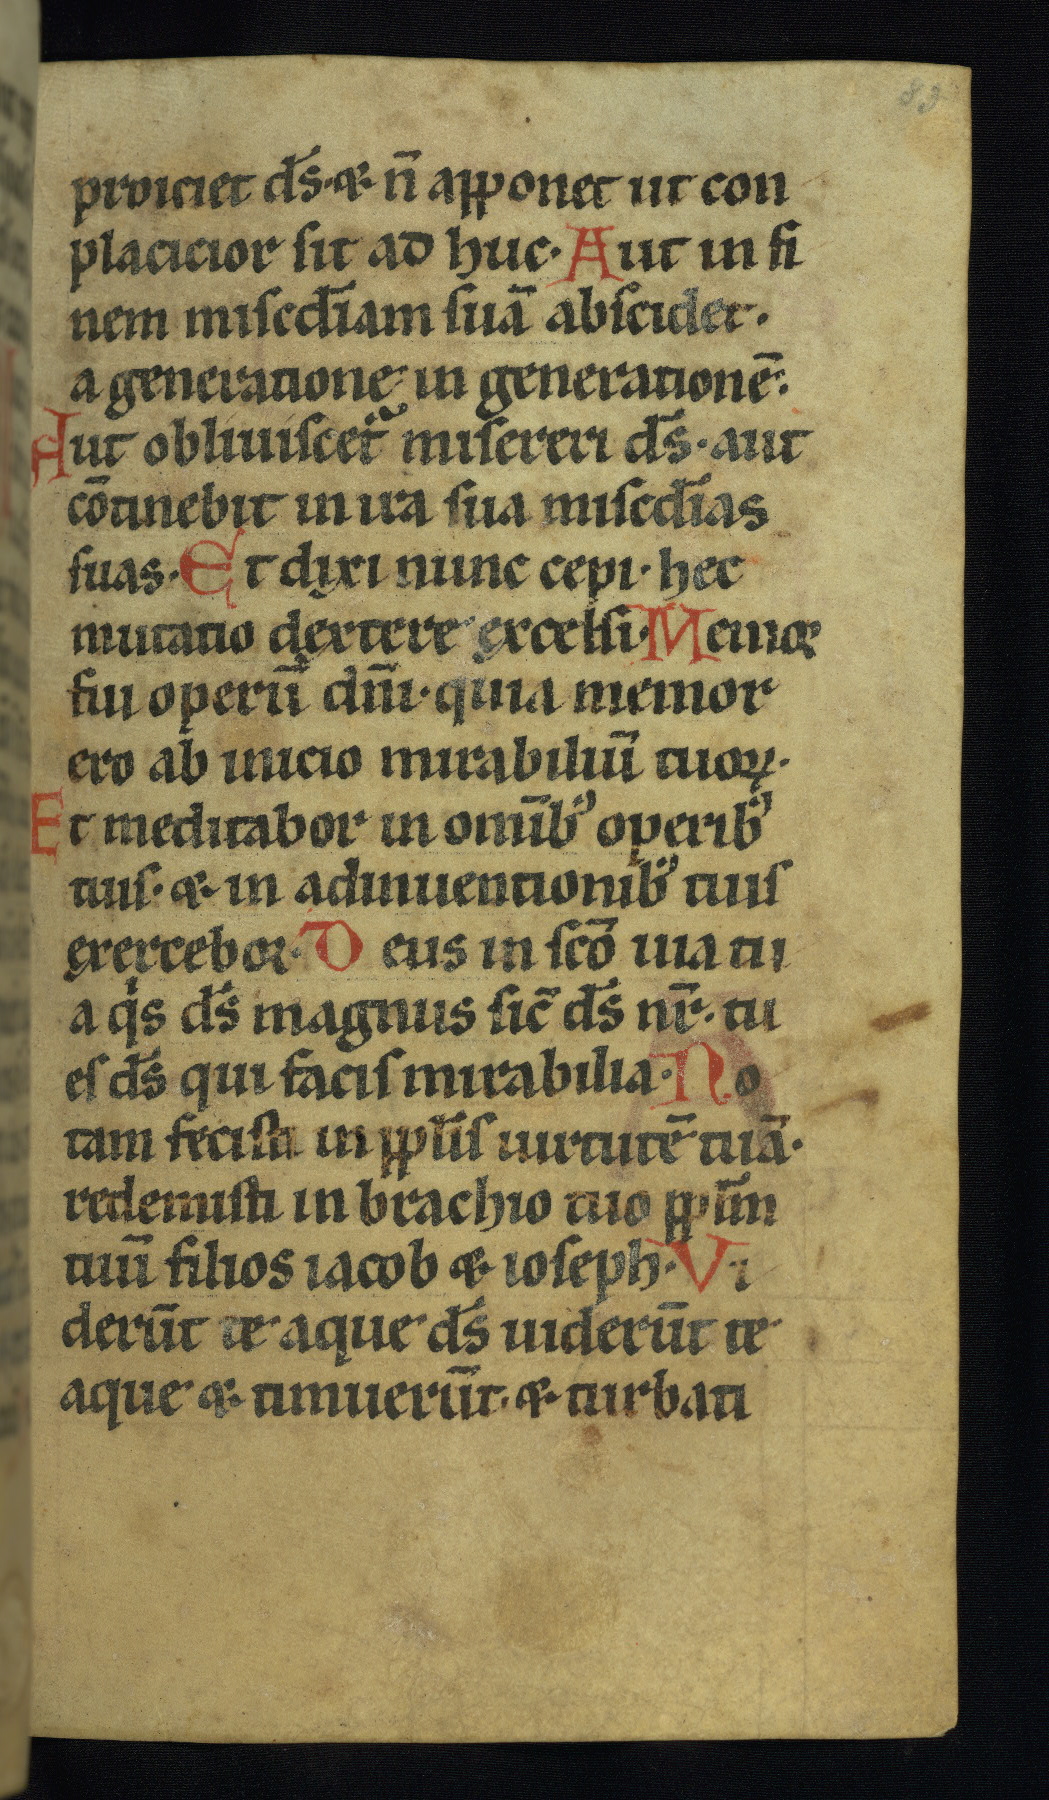 83
proiciet dꝰs· ⁊· n̄ apponet ut con
placicior sit ad huc· Aut in fi
nem misc̄diam suā abscidet·
a generatione in generationē·
Aut obliuiscet̉ misereri ds̄· aut
cōtinebit in ira sua misc̄dias
suas· Et dixi nunc cepi· hec
mutatio dextere excelsi· Memor
fui operū dn̄i· quia memor
ero ab inicio mirabiliū tuoꝝ·
Et meditabor in om̄ib' operib'
tuis· ⁊· in adinuentionib' tuis
exercebor· Deus in sc̄o uia tu
a q̇s ds̄ magnus sic̄ ds̄ nr̄· tu
es ds̄ qui facis mirabilia· No
tam fecisti in ppl̄is uirtutē tuā·
redemisti in brachio tuo ppl̄m
tuū filios iacob ⁊· ioseph· Vi
derūt te aque ds̄ uiderūt te
aque ⁊· timuerūt· ⁊· turbati